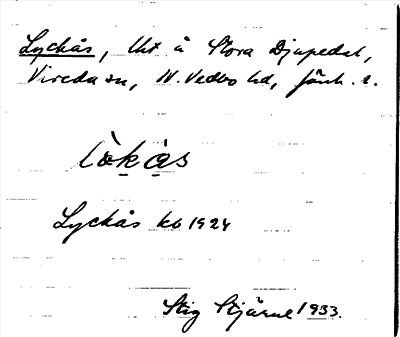 Lyckås, lht å Stora Djupedal,
Vireda sn, N. Vedbo hd, Jönk. l.
lòkås
Lyckås kb 1924
Stig Stjärne 1933.